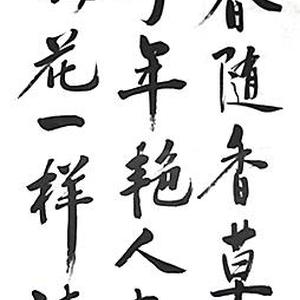 春随香草
年艳人
花一样